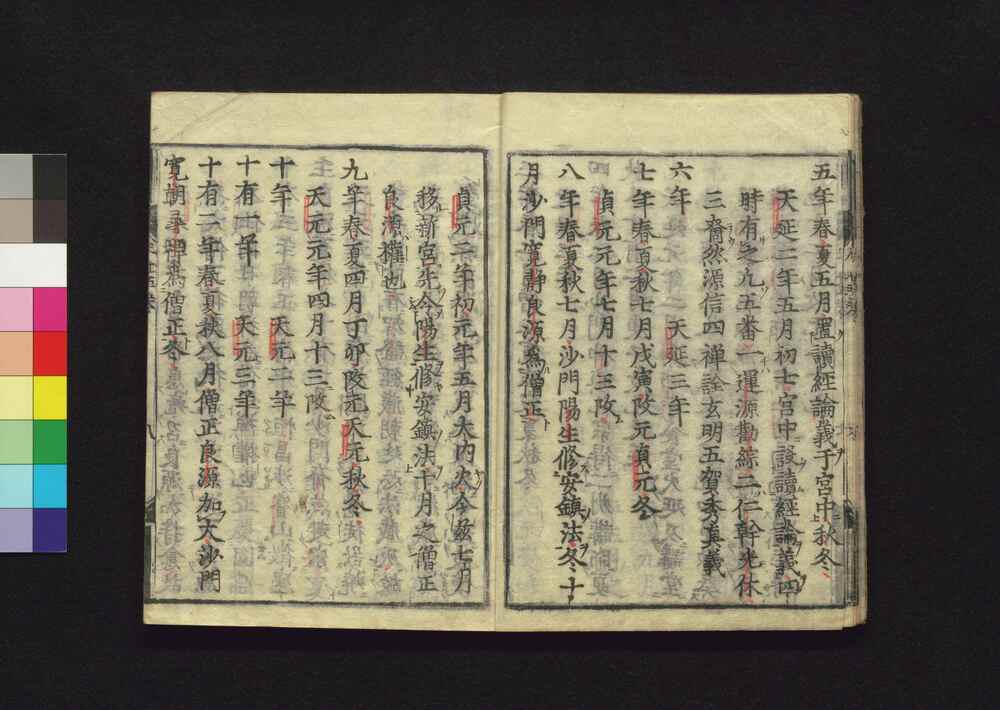 五年春夏五月置讀經論義于宮中秋冬
天延二年五月初七宮中設讀經論義四
時有之九五番一暹源勸綜二仁幹光休
三奝然源信四禅詮玄明五賀秀眞義
六年　天延三年
七年春夏秋七月戊寅改元貞元冬
貞元元年七月十三改
八年春夏秋七月沙門陽生修安鎮法冬十
月沙門寛靜良源爲僧正
貞元二年初元年五月大内火今玆七月
移新宮先令陽生修安鎮法十月之僧正
良源權也
九年春夏四月丁卯改元天元秋冬
天元元年四月十三改
十年　天元二年
十有一年　天元三年
十有二年春夏秋八月僧正良源加大沙門
寛朝尋禅爲僧正冬